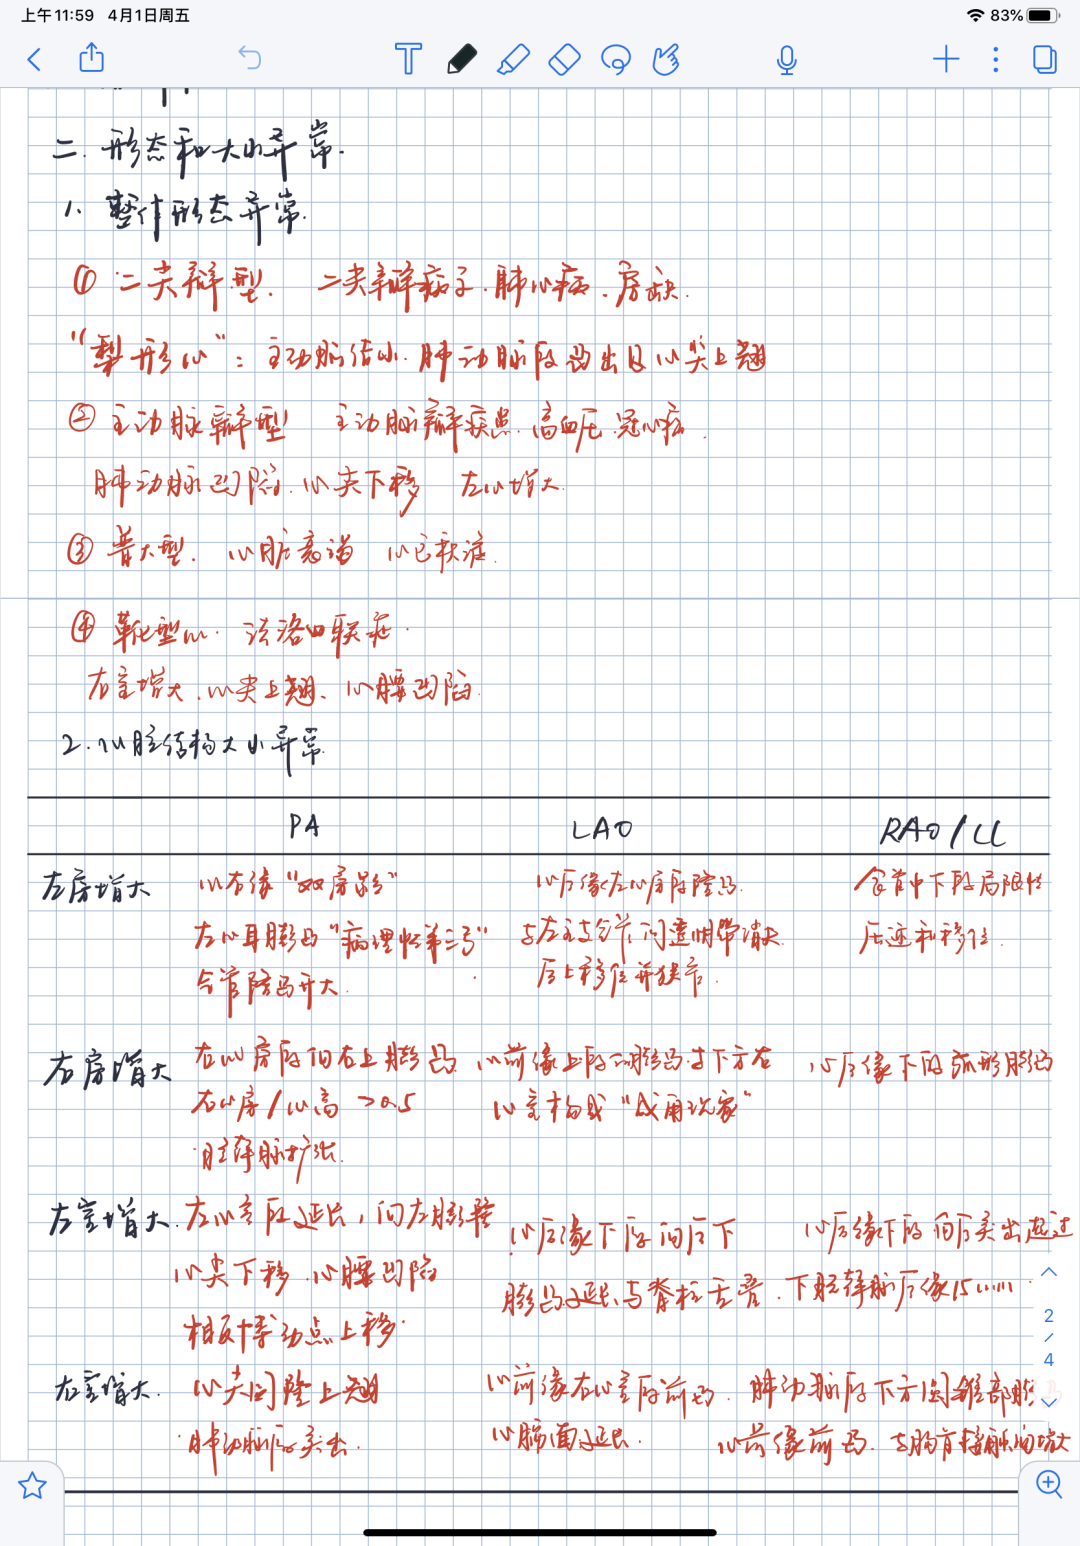 上午11:59 4月1日周五 83%
二. 形态和大小异常.
1. 整体形态异常.
① 二尖瓣型. 二尖瓣病子. 肺心病. 房缺.
"梨形心": 主动脉结小. 肺动脉段凸出且心尖上翘
② 主动脉瓣型 主动脉瓣疾患. 高血压. 冠心病.
肺动脉凹陷. 心尖下移 左心增大.
③ 普大型. 心脏衰竭 心包积液.
④ 靴型心. 法洛四联症.
右室增大. 心尖上翘. 心腰凹陷.
2. 心脏结构大小异常.
PA LAO RAO/LL
左房增大 心右缘"双房影" 心后缘左心房段隆凸. 食管中下段局限性
左心耳膨凸"病理性第三弓" 与左主支气管间透明带消失. 压迹和移位.
气管隆凸开大. 后上移位并狭窄.
右房增大 右心房段向右上膨凸 心前缘上段膨凸与下方右 心后缘下段弧形膨凸
右心房/心高 >0.5 心室构成"成角现象"
腔静脉扩张.
左室增大. 左心室段延长, 向左膨隆 心后缘下段向后下 心后缘下段向后突出超过
心尖下移. 心腰凹陷 膨凸延长与脊柱重叠. 下腔静脉后缘15mm.
相反搏动点上移. 2/4
右室增大. 心尖圆隆上翘 心前缘右心室段前凸. 肺动脉段下方圆锥部膨凸
肺动脉段突出. 心膈面延长. 心前缘前凸. 与胸骨接触面增大